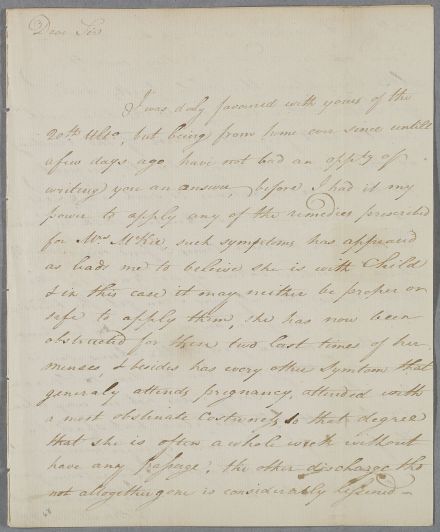 Dear Sir
I was duly favoured with yours of the
20th Ulto, but being from home ever since untill
a few days ago, have not had an oppty of
writing you an answer, before I had it my
power to apply any of the remedies prescribed
for Mrs McKie, such symptoms has appeared
as leads me to beleive she is with Child
& in this case it may neither be proper or
safe to apply them, she has now been
obstructed for these two last times of her
menses, & besides has every other Symtom that
generaly attends pregnancy, attended with
a most obstinate Costiveness to that degree
that she is often a whole week without
have any passage; the other discharge tho
not altogether gone is considerably lessened –